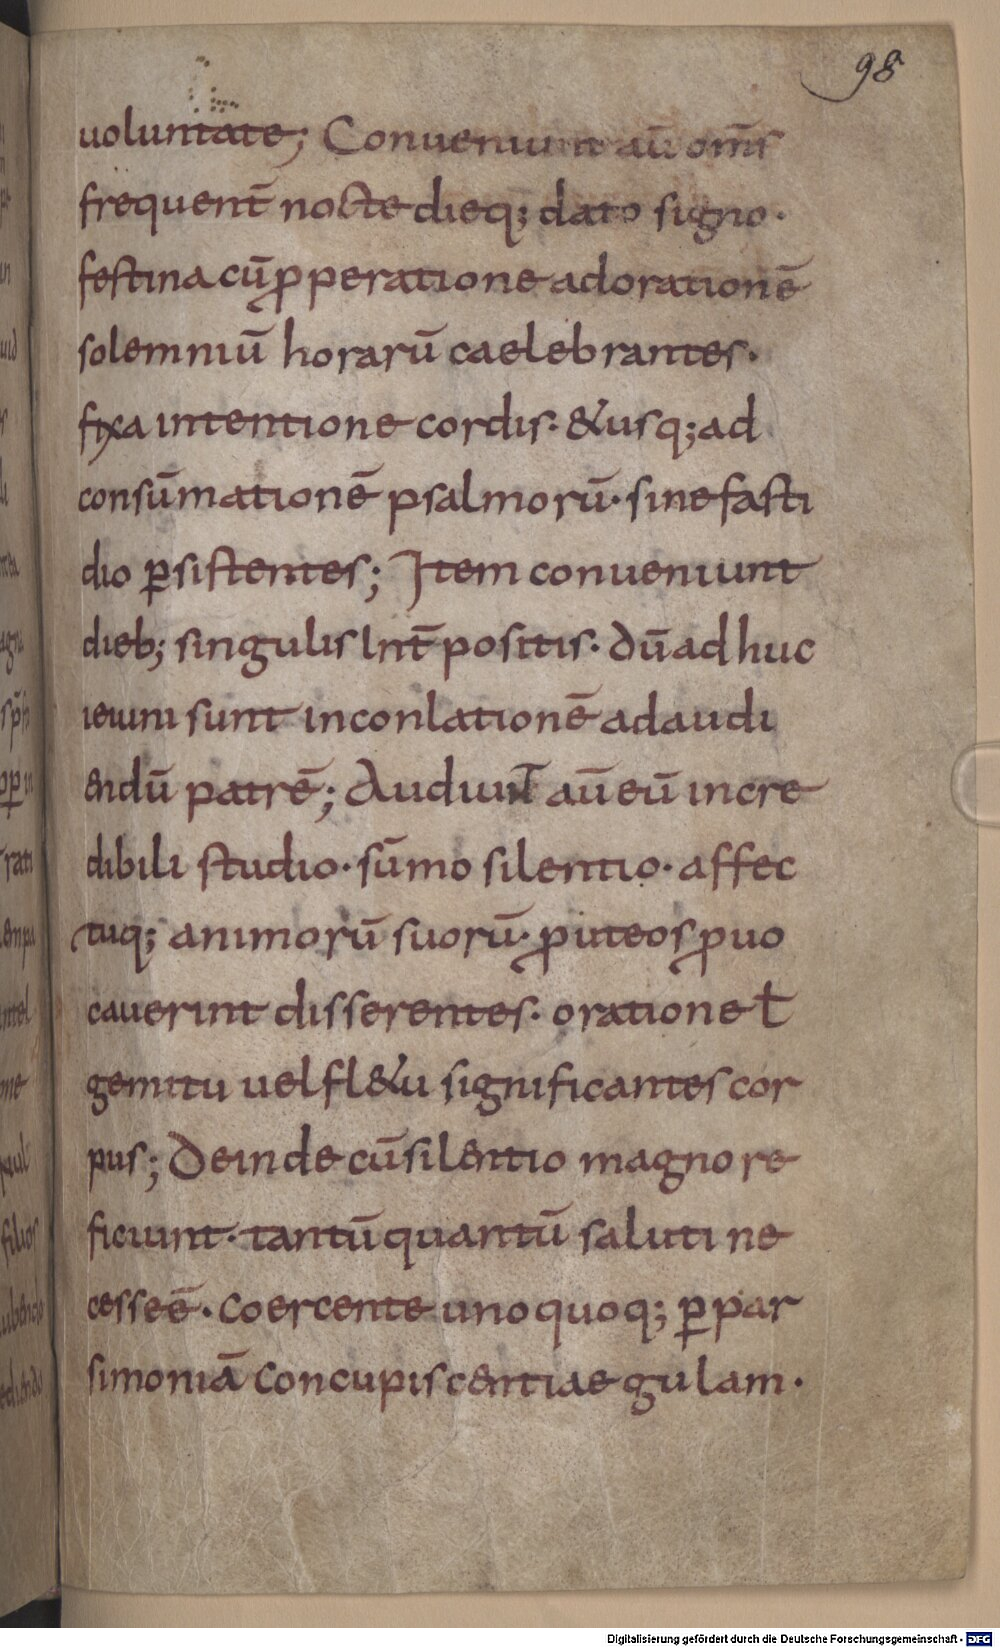 98
uoluntate; Conueniunt aū om̄s
frequent̄ nocte dieq; dato signo·
festina cū ꝓperatione adorationē
solemniū horarū caelebrantes·
fixa intentione cordis· &usq; ad
consūmationē psalmorū· sine fasti
dio ꝑsistentes; Item conueniunt
dieb; singulis Int̄ positis· dū adhuc
ieiuni sunt inconlationē adaudi
endū patrē; Audiunt aū eū incre
dibili studio· sūmo silentio· affec
tuq; animorū suorū· ꝓut eos ꝓuo
cauerint disserentes· oratione ł
gemitu uel fl&u significantes cor
pus; Deinde cū silentio magno re
ficiunt· tantū quantū saluti ne
cesse ē· Coercente unoquoq; ꝑ par
simoniā concupiscentiae gulam·
Digitalisierung gefördert durch die Deutsche Forschungsgemeinschaft - DFG